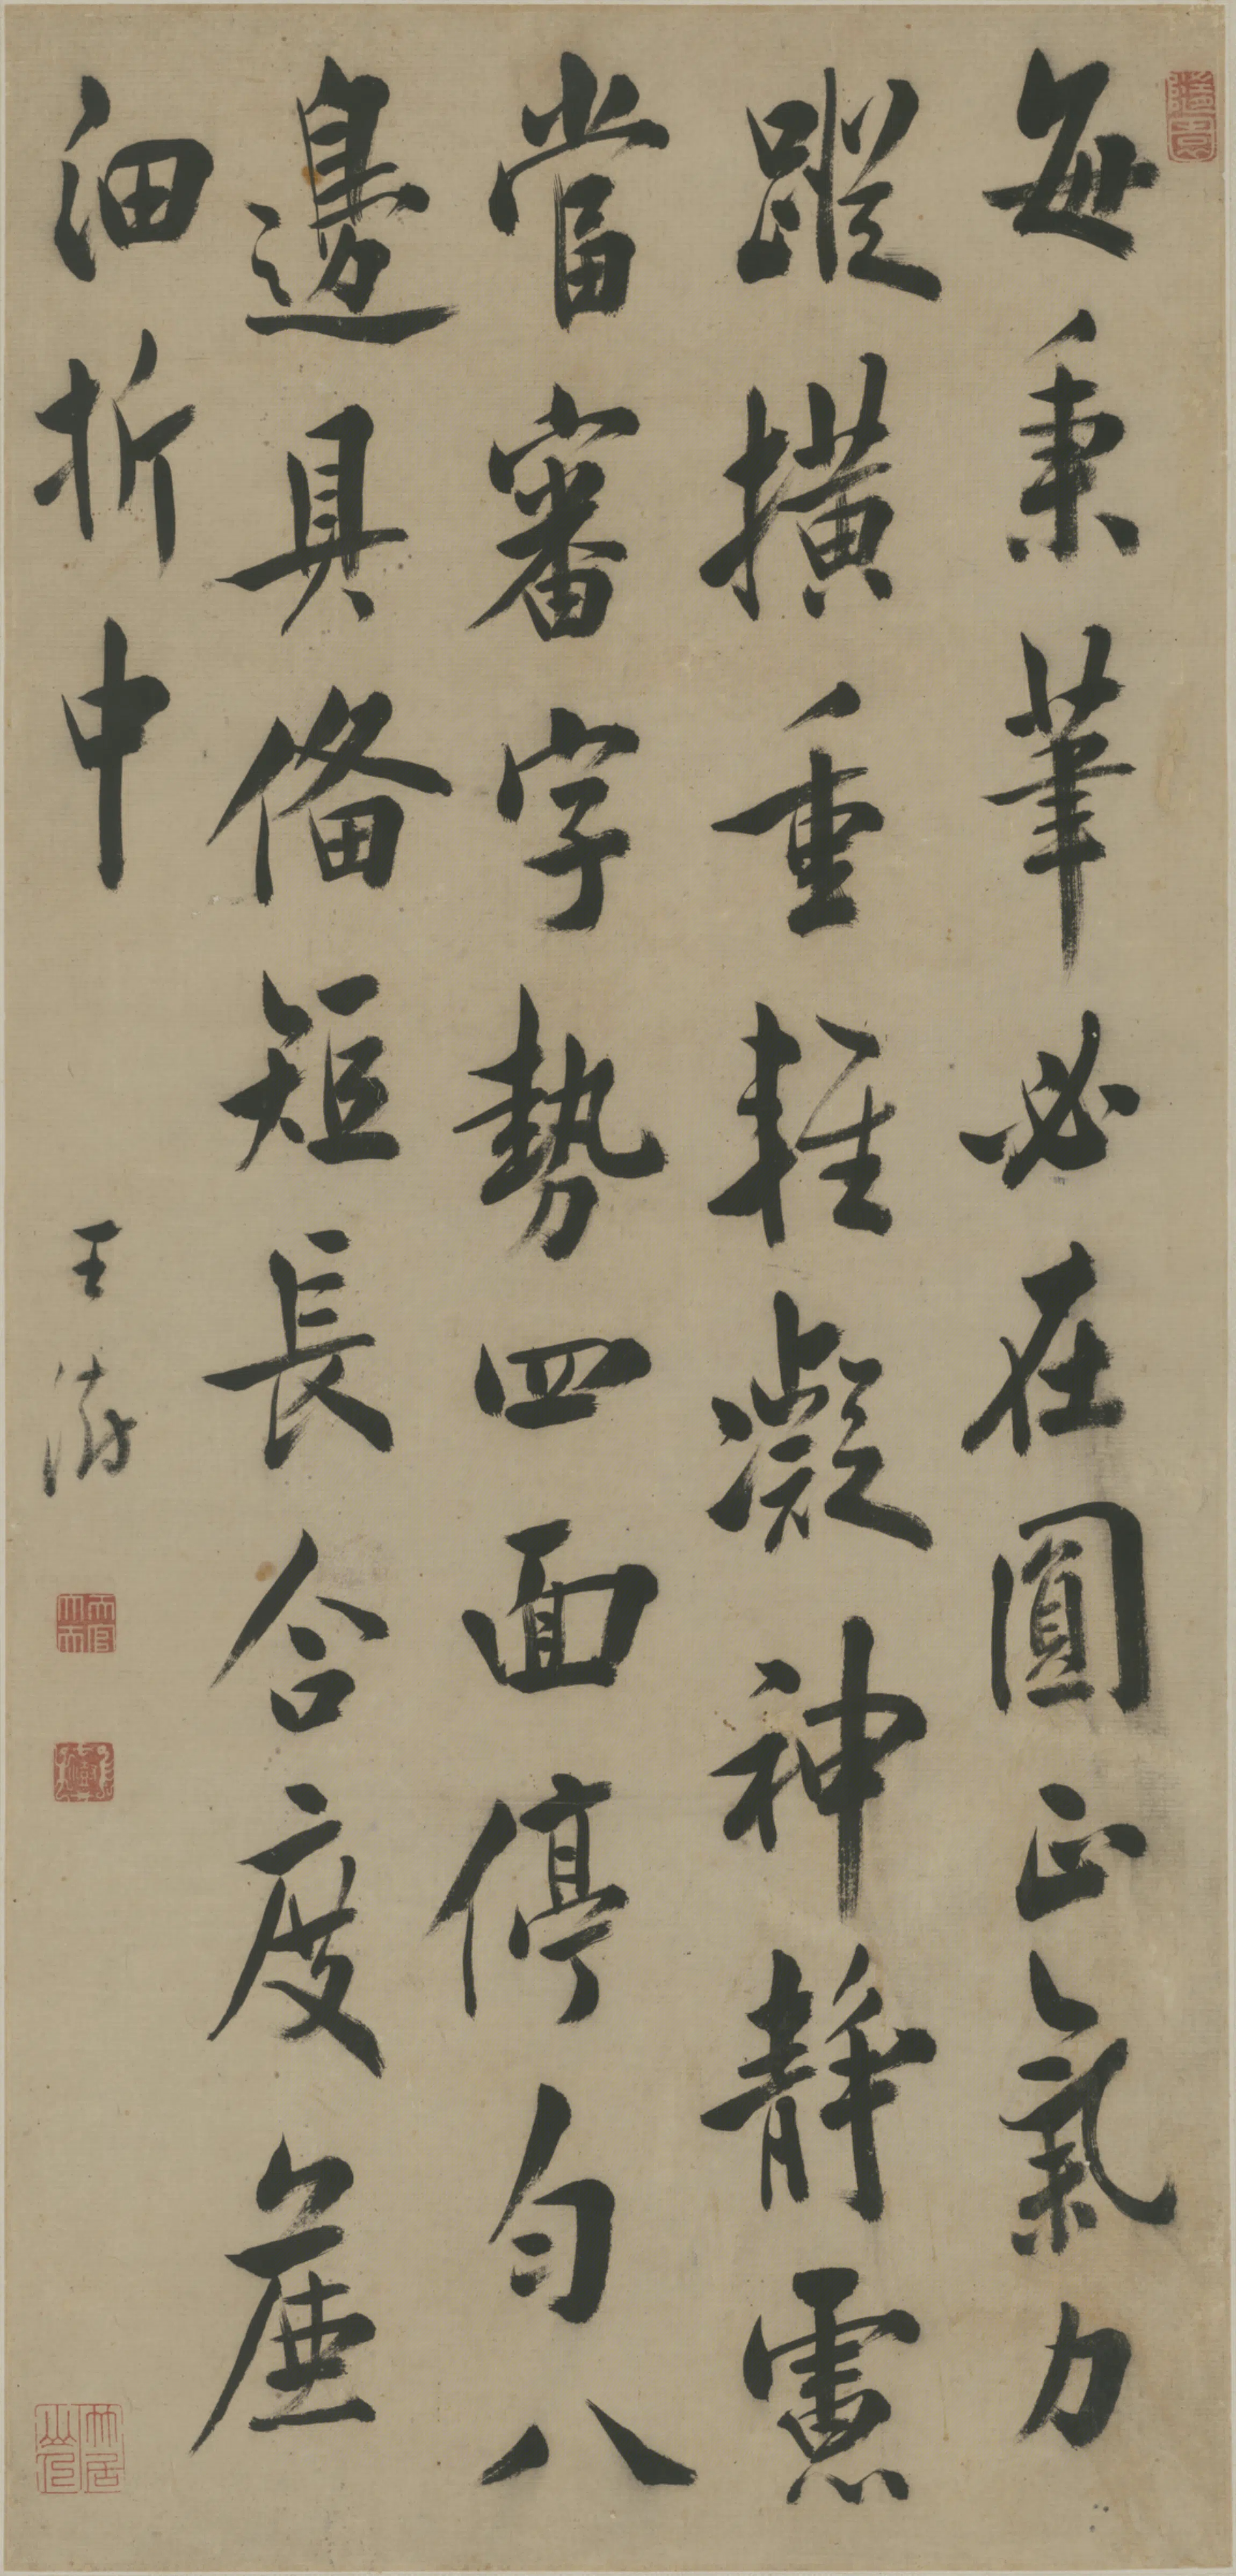 每秉筆必在圓正氣力
蹤橫重輕凝神靜慮
當審字勢四面停勻八
邊具備短長合度麤
細折中
王澍